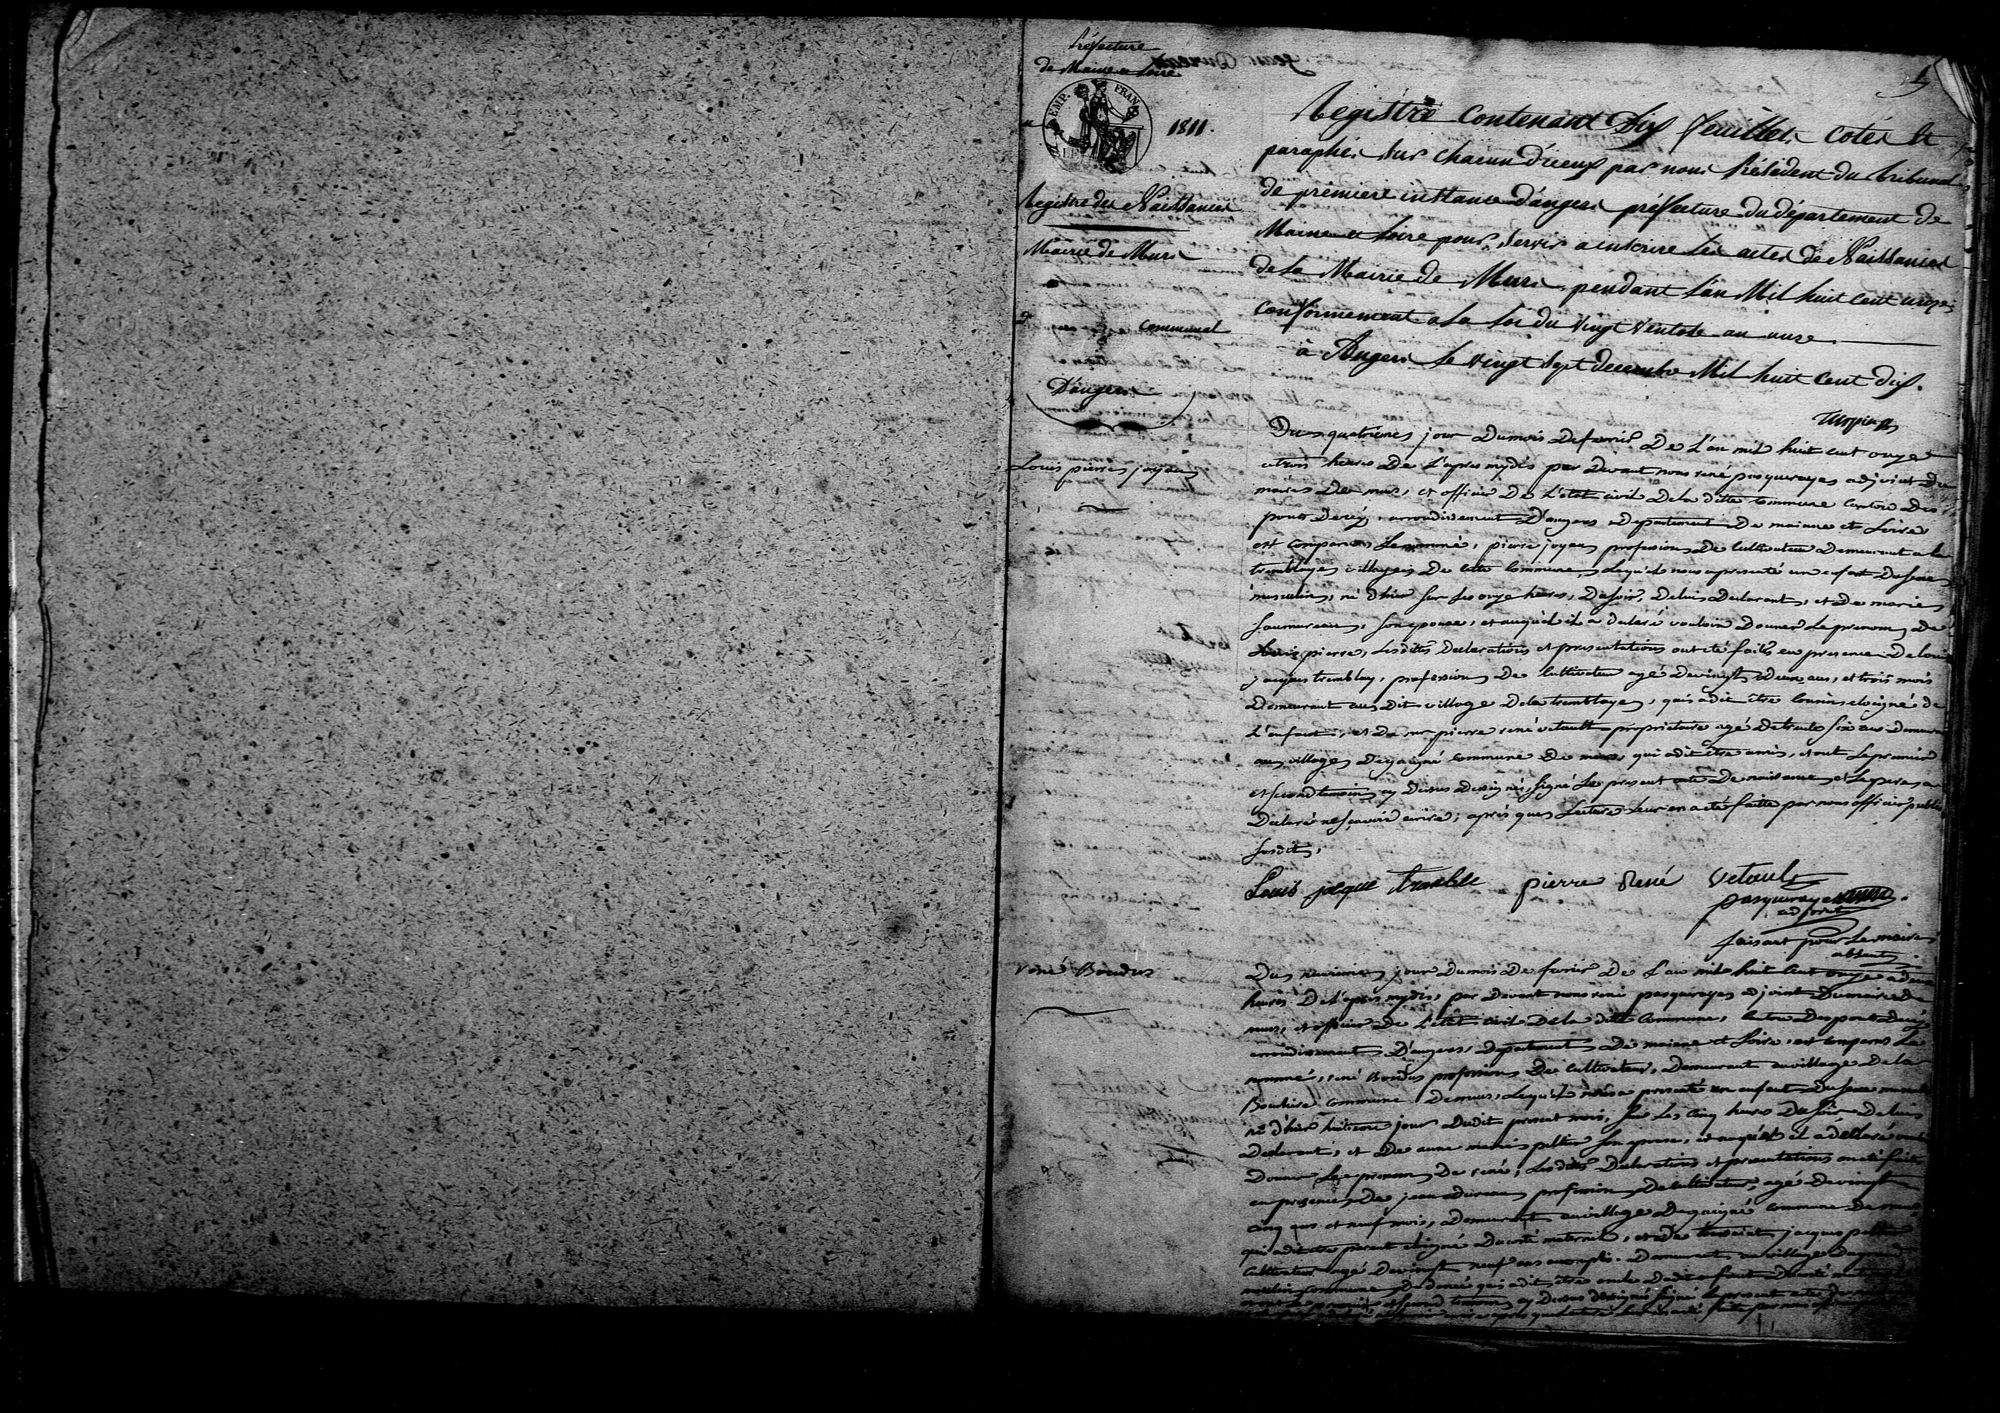 Préfecture
de Maine et Loire
EMP. FRAN
1811.
Registre des Naissances
Mairie de Murs
communal
D'angers
1
Registre contenant Dix feuilles cotés et
paraphés sur chacun d'iceux par nous Président du tribunal
de premiere instance d'angers préfecture du département de
Maine et Loire pour servir a inscrire les actes de Naissances
de la Mairie de Murs pendant l'an Mil huit cent onze
conformement a la Loi du vingt ventose an onze.
à Angers le vingt sept decembre Mil huit cent dix.
Louis pierre joyau
Du quatrieme jour du mois de fevrier de l'an mil huit cent onze
a trois heures de l'apres mydis par devant nous rené pasqueraye adjoint du
maire de murs, et officier de l'etat civil de la ditte commune canton des
ponts de cé, arrondissement d'angers departement de maiane et Loire
est comparu le nommé, pierre joyau profession de cultivateur demeurant a la
tremblaye village de cette commune, lequel nous a presenté un enfant du sexe
masculin, né d'hier sur les onze heures, du soir, de luis declarant, et de marie
saumureau, son epouse, et auquel il a declaré vouloir donner le prenom de
Louis pierre, les dittes declarations et presentations ont eté faits en presence de louis
jacques tremblay, profession de cultivateur agé de vingt deux ans, et trois mois
demeurant au dit village de la tremblaye, qui a dit être cousin eloigné de
l'enfant, et de mr pierre rené vetault proprietaire agé de trente six ans demeurant
au village de gaigné commune de murs qui a dit être amis, et ont le premier
et second temoins cy dessus designés, signé le present acte de naissance et le pere a
declaré ne sçavoir ecrire, apres que lecture leur en a eté faitte par nous officier public
susdit,
Louis jaque tremblé pierre René Vetault
pasqueraye
adjoint
faisant pour le maire
absent
rené Boudus
Du neuvieme jour du mois de fevrier de l'an mil huit cent onze a deux
heures de l'apres mydis, par devant nous rené pasqueraye adjoint du maire de
murs, et officier de l'etat civil de la ditte commune, canton des ponts de cé
arrondissement d'angers, departement de maiane et Loire, est comparu le
nommé, rené Boudus profession de cultivateur, demeurant au village de la
commune de murs, lequel nous a presenté un enfant du sexe masculin
né d'hier huitieme jour du dit present mois, sur les cinq heures du soir de luis
declarant, et de anne marie son epouse, et auquel il a declaré vouloir
donner le prenom de rené, les dittes declarations et presentations ont eté faits
en presence de jean dureau profession de cultivateur, agé de vingt
cinq ans et neuf mois, demeurant au village de gaigné commune de murs
qui a dit être parent eloigné du coté maternel, et de jacques
cultivateur agé de vingt neuf ans accomplis, demeurant au village du grand
moulin commune de qui a dit être oncle du dit enfant du coté maternel